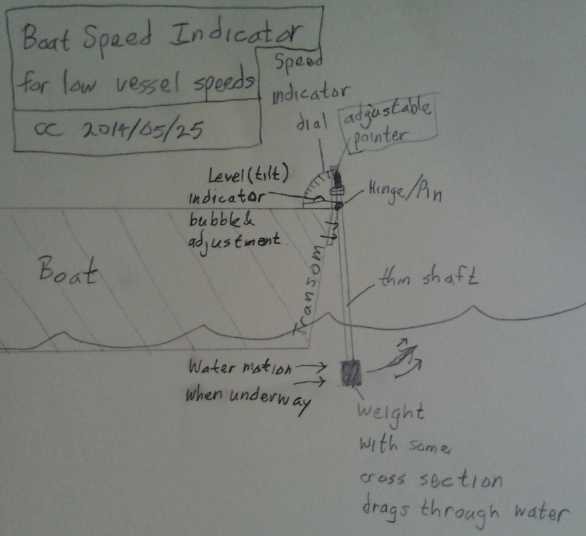 Boat Speed Indicator
for low vessel speeds
CC 2014/05/25
Speed
indicator
dial
adjustable
pointer
Level(tilt)
indicator
bubble &
adjustment
Hinge/Pin
Boat
Transom
thin shaft
Water motion
when underway
weight
with some
cross section
drags through water